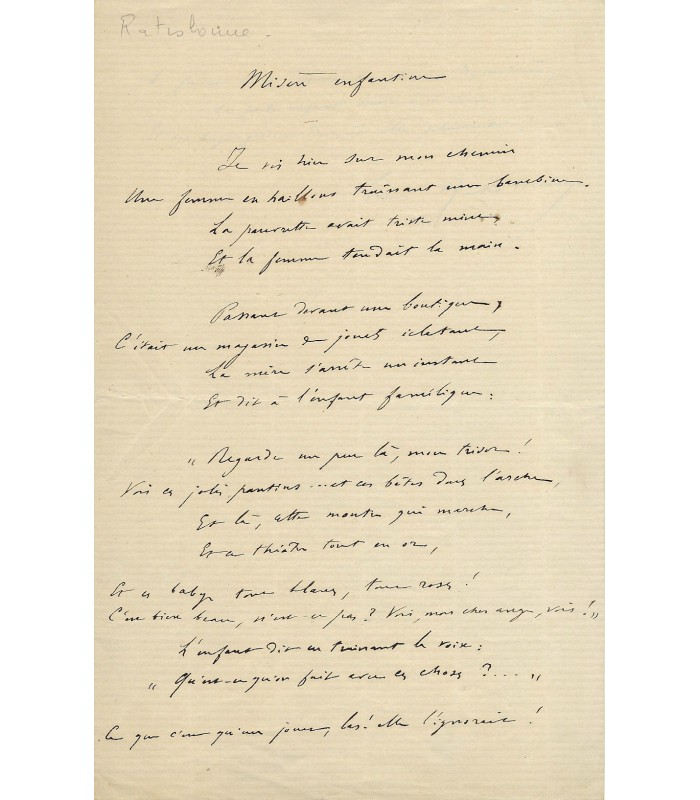 Ratisbonne.
Misère enfantine
Je vis hier sur mon chemin
Une femme en haillons traînant une bambine.
La pauvrette avait triste mine,
Et la femme tendait la main.
Passant devant une boutique,
C'était un magasin de jouets éclatant,
La mère s'arrête un instant
Et dit à l'enfant famélique :
"Regarde un peu là, mon trésor !
Vois ces jolis pantins... et ces bêtes dans l'arche,
Et là, cette montre qui marche,
Et ce théâtre tout en or,
Et ces babys tout blancs, tout roses !
C'est bien beau, n'est-ce pas ? Vois, mon cher ange, vois !"
L'enfant dit en traînant la voix :
"Qu'est-ce qu'on fait avec ces choses ?...."
Ce que c'est qu'un jouet, las ! elle l'ignorait !